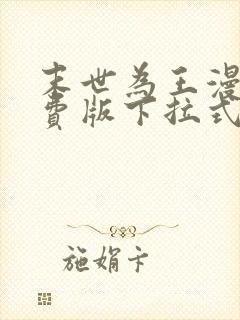 末世为王漫
费版下拉式
施娟卞